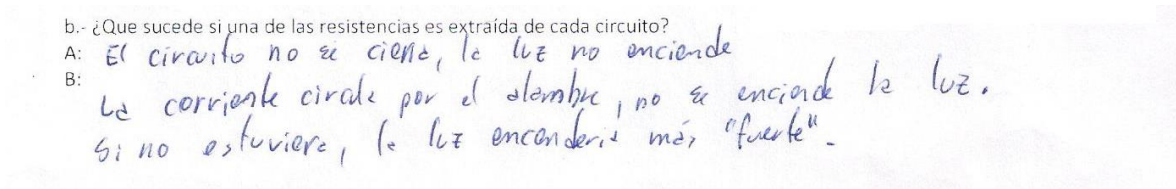 b.- ¿Que sucede si una de las resistencias es extraída de cada circuito?
A: El circuito no se cierra, la luz no enciende
B:
La corriente circula por el alambre, no se enciende la luz.
Si no estuviera, la luz encendería más "fuerte".